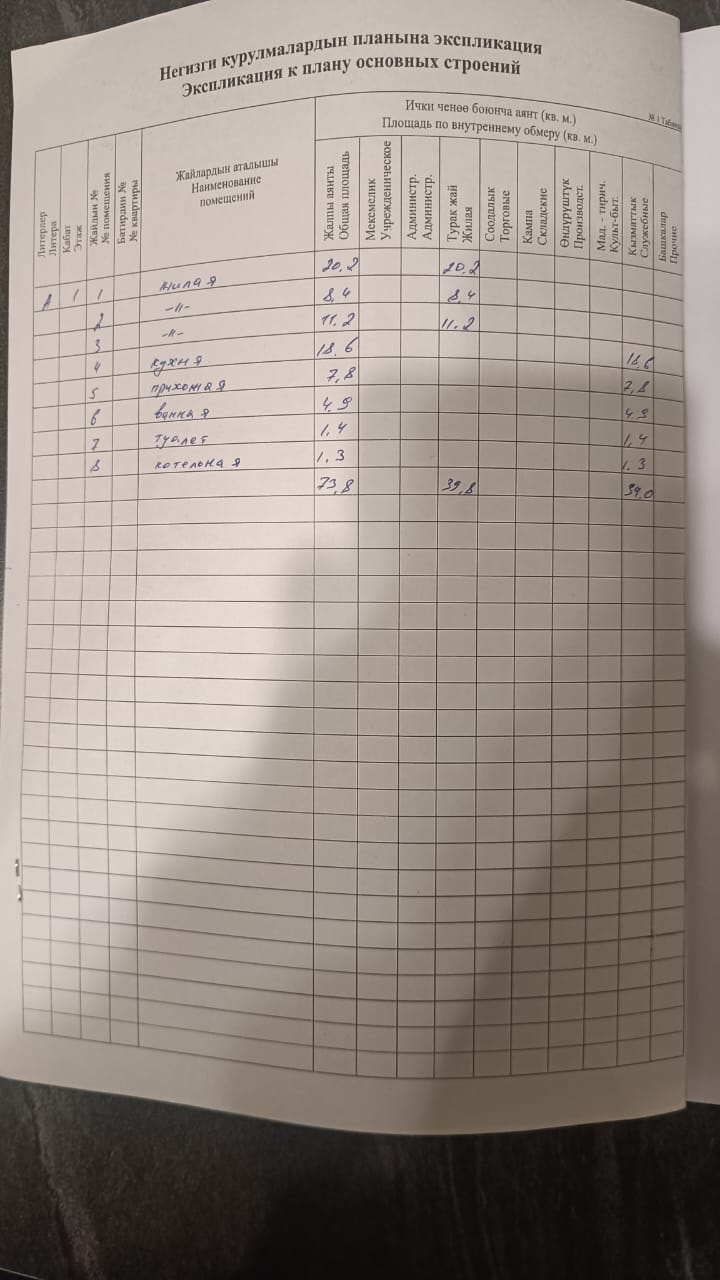 Негизги курулмалардын планына экспликация
Экспликация к плану основных строений
№ 1 Таблица
Литерлер
Литера
Кабат
Этаж
Жайдын №
№ помещения
Батирдин №
№ квартиры
Жайлардын аталышы
Наименование
помещений
Ички ченөө боюнча аянт (кв. м.)
Площадь по внутреннему обмеру (кв. м.)
Жалпы аянты
Общая площадь
Мекемелик
Учрежденическое
Администр.
Администр.
Турак жай
Жилая
Соодалык
Торговые
Кампа
Складские
Өндүрүштүк
Производст.
Мад. - тирич.
Культ-быт.
Кызматтык
Служебные
Башкалар
Прочие
А 1 1 жилая 20.2 20.2
2 -//- 8,4 8,4
3 -//- 11.2 11.2
4 кухня 18.6 18.6
5 прихожая 7,8 7,8
6 ванная 4.9 4.9
7 туалет 1,4 1,4
8 котельная 1.3 1.3
73,8 39,8 34.0